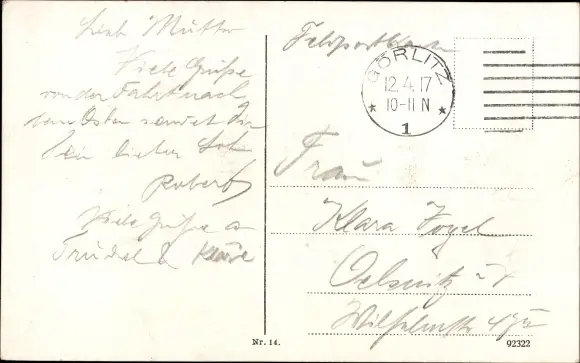 Lieb Mutter
Viele Grüße
von der Fahrt nach
dem Osten sendet Dir
Dein lieber Sohn
Robert
Viele Grüße an
Trudel u Kläre
Feldpostkarte
GÖRLITZ
12.4.17
10-11 N
* 1 *
Frau
Klara Vogel
Oelsnitz i/
Wilhelmstr
Nr. 14.
92322